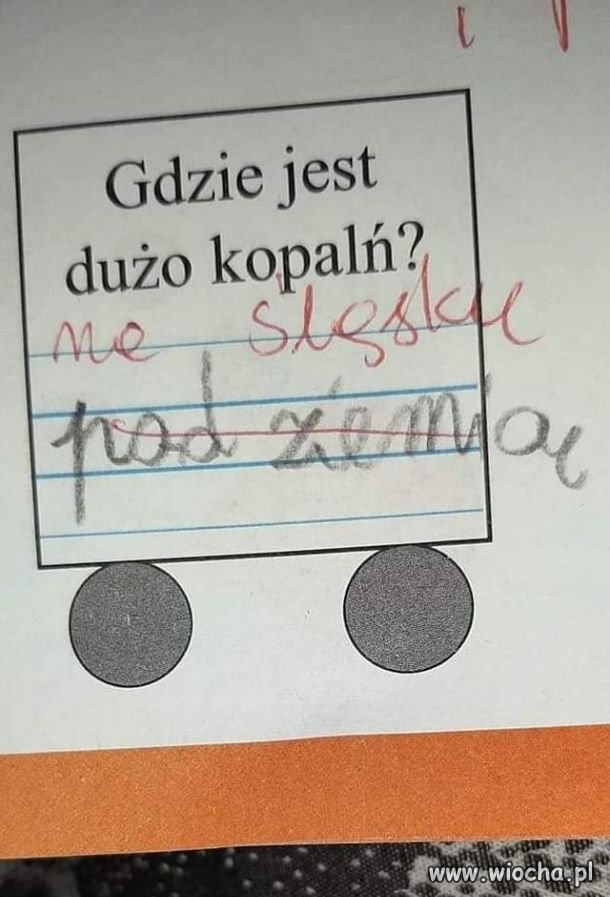 Gdzie jest
dużo kopalń?
na śląsku
pod ziemią
www.wiocha.pl